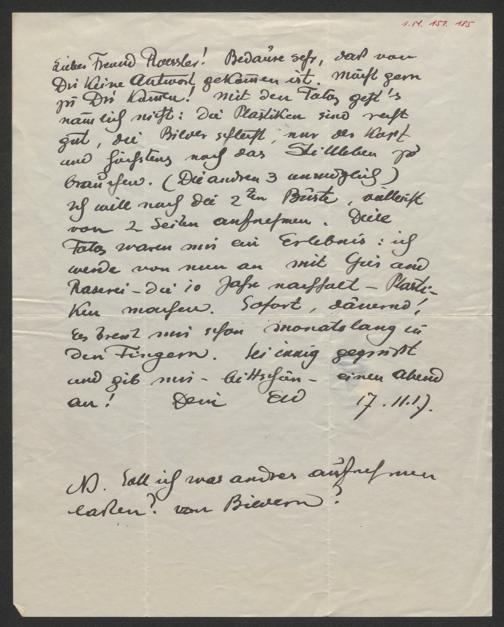 1.14. 157. 185
Lieber Freund Roessler! Bedaure sehr, daß von
Dir keine Antwort gekommen ist. Möcht gern
zu Dir kommen! Mit den Fotos geht's
nämlich nicht: Die Plastiken sind recht
gut, die Bilder schlecht, nur der Kopf
und höchstens noch das Stillleben zu
brauchen. (Die andren 3 unmöglich)
Ich will noch die 2te Büste, vielleicht
von 2 Seiten aufnehmen. Diese
Fotos waren mir ein Erlebnis: ich
werde von nun an mit Gier und
Raserei – die 10 Jahre nachholt – Plasti-
ken machen. Sofort, dauernd!
Es brennt mir schon monatelang in
den Fingern. Sei innig gegrüßt
und gib mir – bittschön – einen Abend
an! Dein 17.11.17.
NB. Soll ich was andres aufnehmen
lassen? von Bildern?